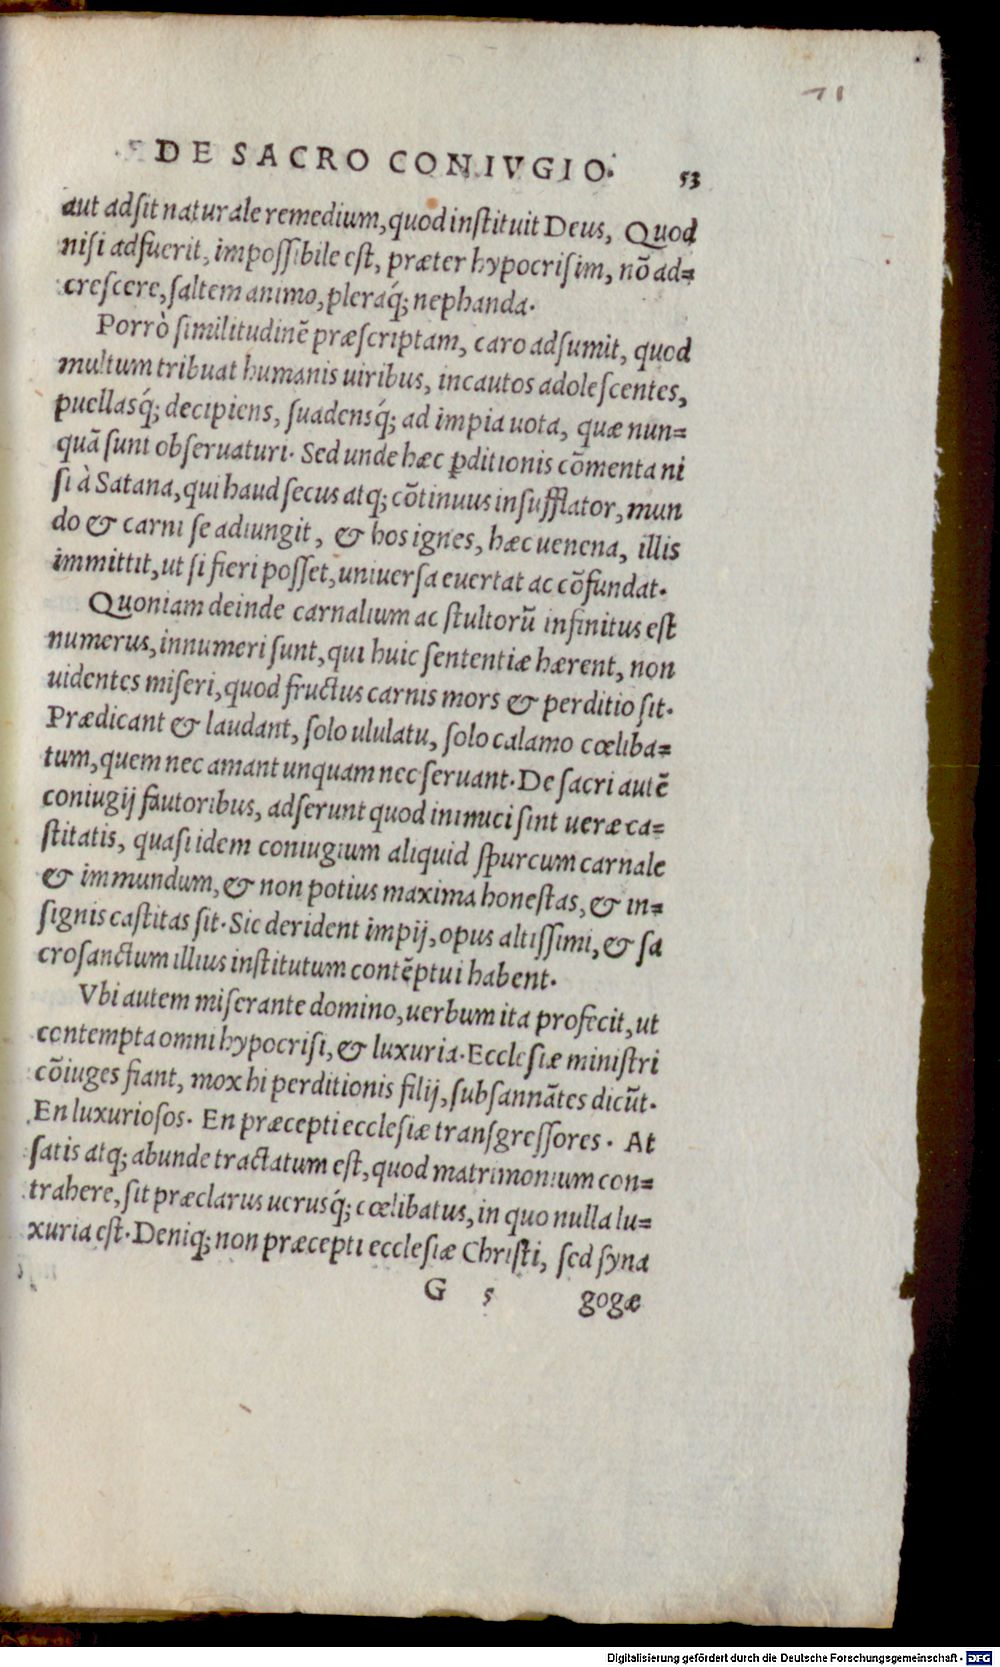 71
DE SACRO CONIVGIO. 53
aut adſit naturale remedium, quod inſtituit Deus, Quod
niſi adfuerit, impoſſibile eſt, præter hypocriſim, nō ad=
creſcere, ſaltem animo, pleraq́; nephanda.
Porrò ſimilitudinē præſcriptam, caro adſumit, quod
multum tribuat humanis uiribus, incautos adoleſcentes,
puellasq́; decipiens, ſuadensq́; ad impia uota, quæ nun=
quā ſunt obſeruaturi. Sed unde hæc ꝑditionis cōmenta ni
ſi à Satana, qui haud ſecus atq; cōtinuus inſufflator, mun
do & carni ſe adiungit, & hos ignes, hæc uenena, illis
immittit, ut ſi fieri poſſet, uniuerſa euertat ac cōfundat.
Quoniam deinde carnalium ac ſtultorū infinitus eſt
numerus, innumeri ſunt, qui huic ſententiæ hærent, non
uidentes miſeri, quod fructus carnis mors & perditio ſit.
Prædicant & laudant, ſolo ululatu, ſolo calamo cœliba=
tum, quem nec amant unquam nec ſeruant. De ſacri autē
coniugij fautoribus, adſerunt quod inimici ſint ueræ ca=
ſtitatis, quaſi idem coniugium aliquid ſpurcum carnale
& immundum, & non potius maxima honeſtas, & in=
ſignis caſtitas ſit. Sic derident impij, opus altiſſimi, & ſa
croſanctum illius inſtitutum contēptui habent.
Vbi autem miſerante domino, uerbum ita profecit, ut
contempta omni hypocriſi, & luxuria. Eccleſiæ miniſtri
cōiuges fiant, mox hi perditionis filij, ſubſannātes dicūt.
En luxurioſos. En præcepti eccleſiæ tranſgreſſores. At
ſatis atq; abunde tractatum eſt, quod matrimonium con=
trahere, ſit præclarus uerusq́; cœlibatus, in quo nulla lu=
xuria eſt. Deniq; non præcepti eccleſiæ Chriſti, ſed ſyna
G 5 gogæ
Digitalisierung gefördert durch die Deutsche Forschungsgemeinschaft - DFG